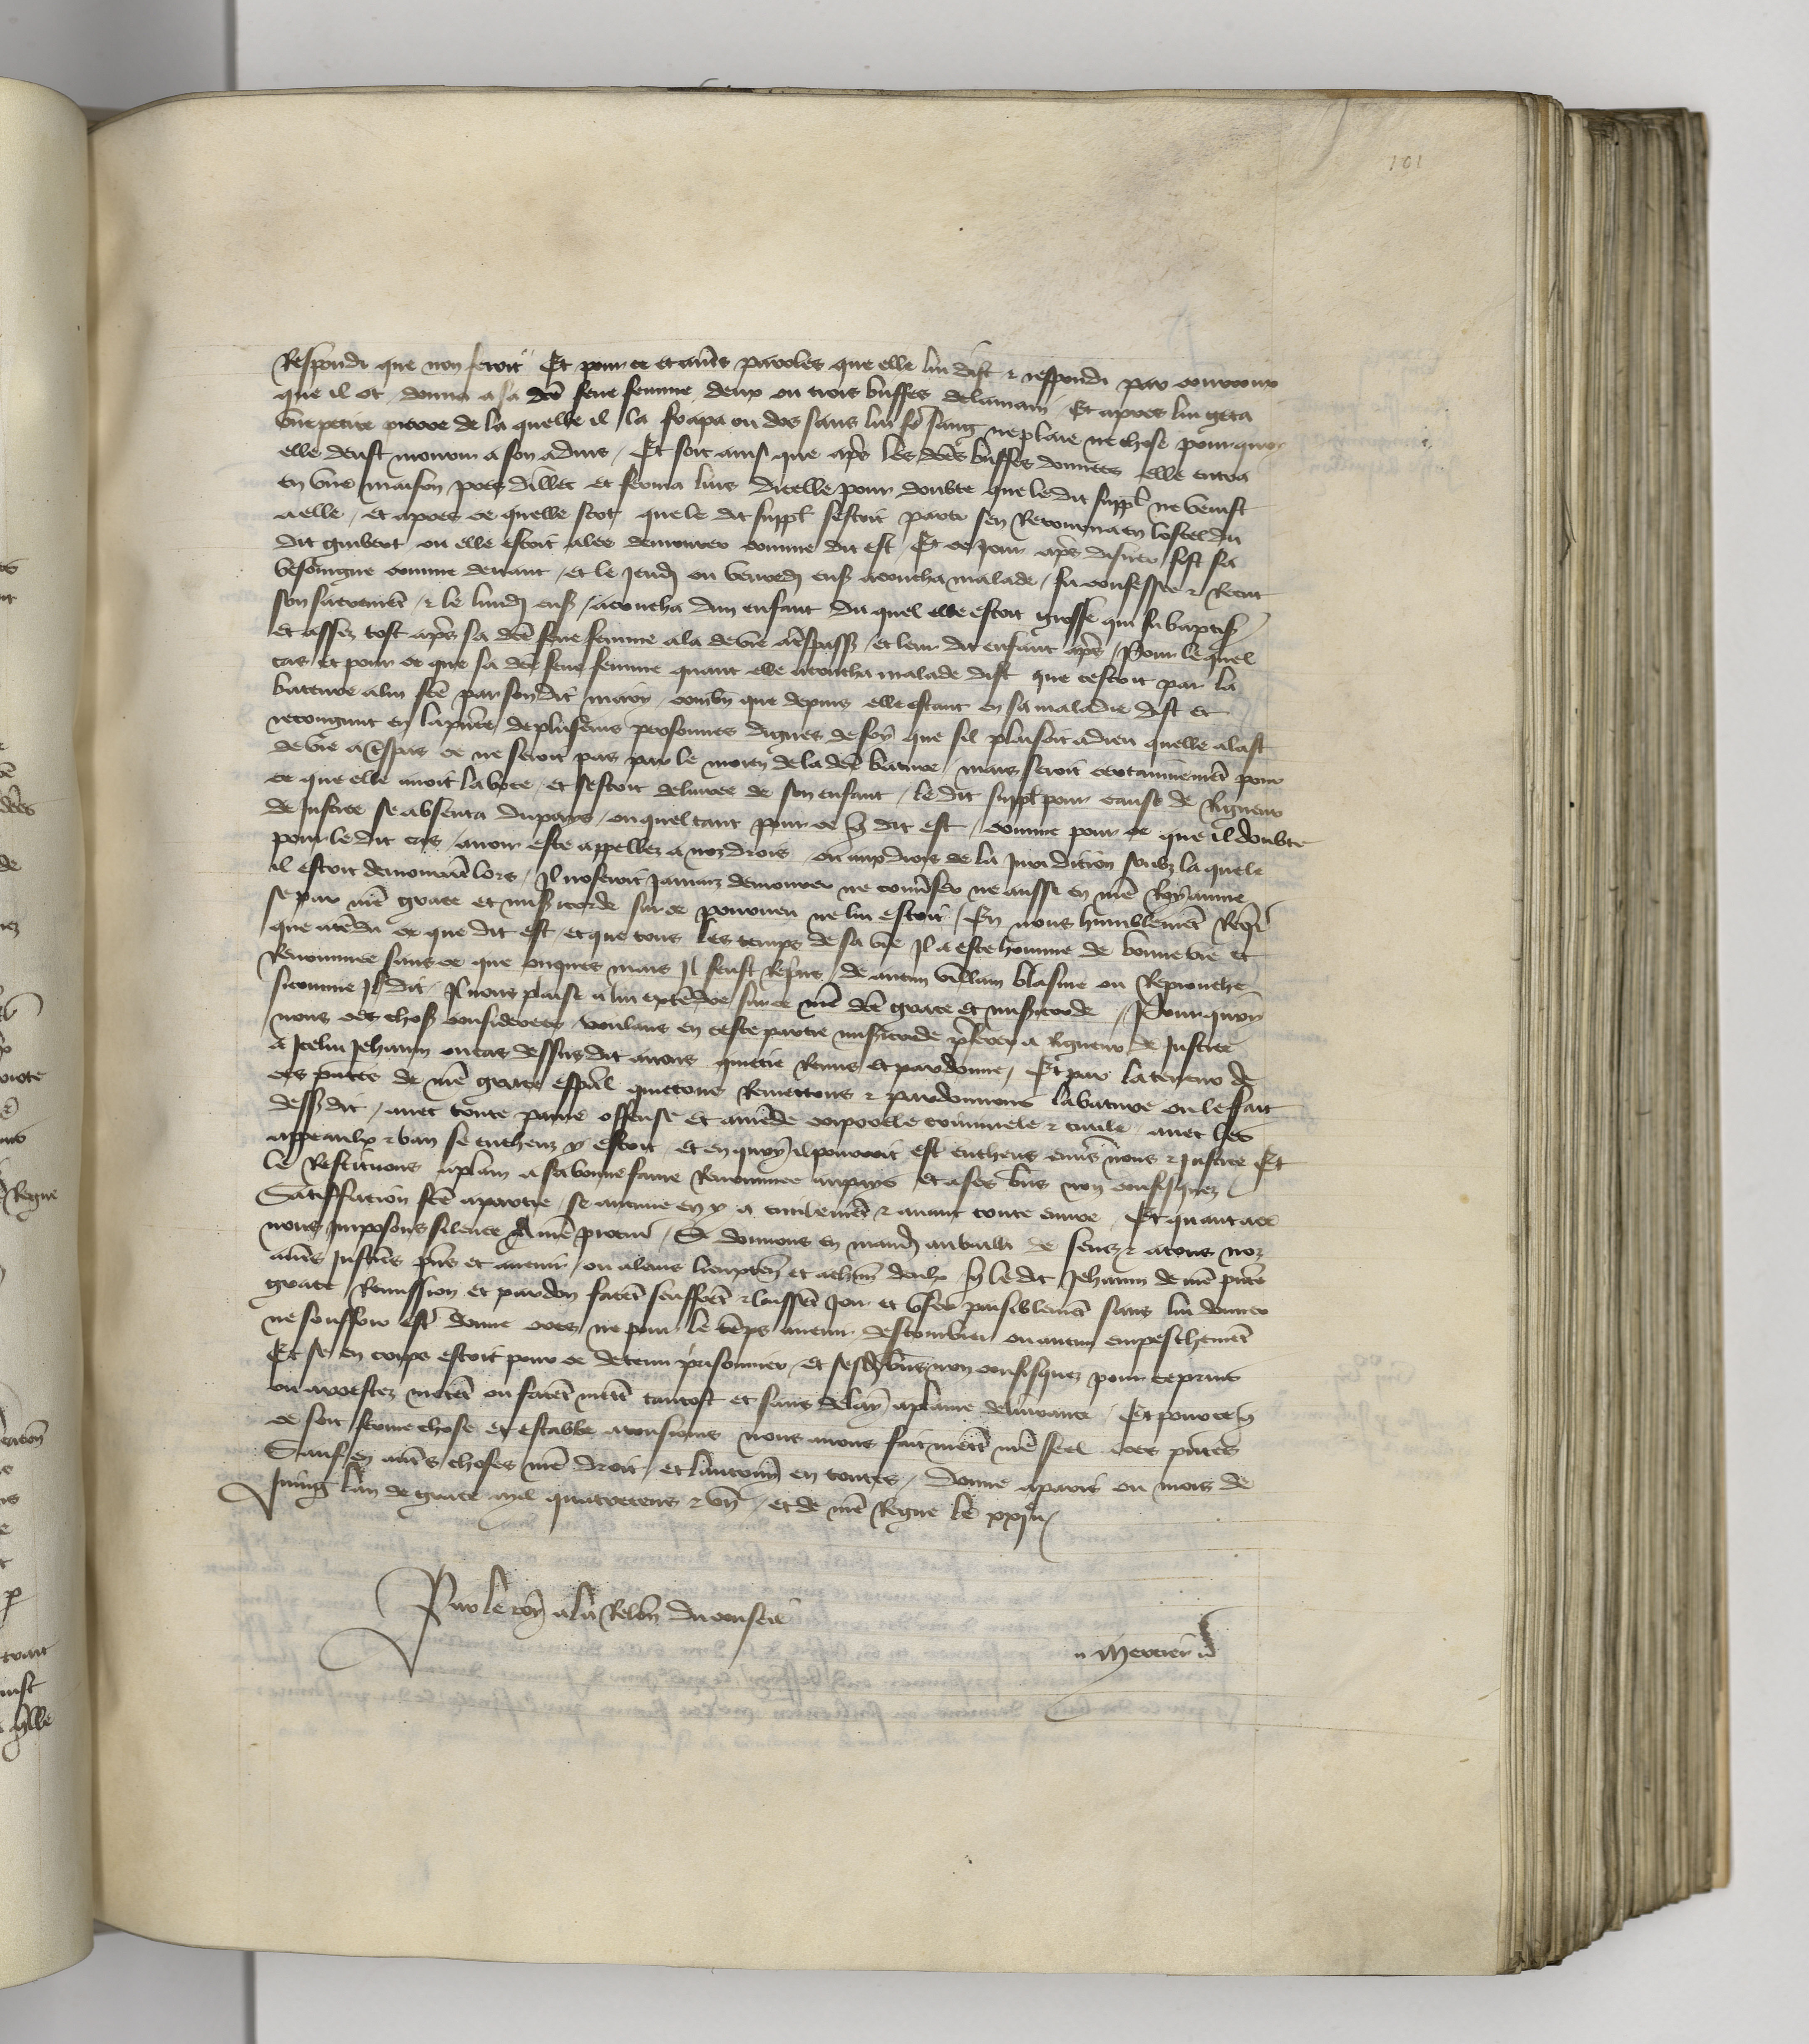 101
Respondi que non feroit Et pour ce et autres paroles que elle lui dist & respondi par courroux
que il ot donna a sa dce feue femme deux ou trois buffes de la main Et apres lui geta
une petite pierre de la quelle il la frapa ou dos sans lui fe sang ne plaie ne chose pourquoy
elle deust mourir a son advis Et soit ainsi que apres les dces buffes donnees elle entra
en une maison pres dillec et ferma luis dicelle pour doubte que le dit suppl ne venist
a elle et apres ce quelle scot que le dit suppl sestoit parti sen Retourna en lostel du
dit guibert ou elle estoit alee demourer comme dit est Et ce jour apres disner fist sa
besoingne comme devant et le jeudi ou vendredi ens acoucha malade fu confessee & Recut
son sacrement & le lundi ens acoucha dun enfant du quel elle estoit grosse qui fu baptisie
et assez tost apres sa dce feue femme ala de vie a trespass et leur dit enfant apres Pour lequel
cas et pour ce que sa dce feue femme quant elle acoucha malade dist que cestoit par la
bateure a lui fce par son dit mary combn que depuis elle estant en sa maladie dist et
recongnut en la pnce de pluseurs personnes dignes de foy que sil plaisoit a dieu quelle alast
de vie a trespas ce ne seroit pas par le moien de la dce bateure mais seroit certainnement pour
ce que elle avoit la boce et sestoit delivree de son enfant le dit suppl pour cause de Rigueur
de justice se absenta du pays ou quel tant pour ce que dit est comme pour ce que il doubte
pour le dit cas avoir este appellez a noz drois ou aux drois de la juridicion soubz la quele
il estoit demourant lors Il noseroit jamaiz demourer ne converser ne aussi en nre Royaume
se par nre grace et misericorde sur ce pourveu ne lui estoit Si nous humblement Requis
que atendu ce que dit est et que tous les temps de sa vie Il a este homme de bonne vie et
Renommee sans ce que onques mais Il feust Repris de aucun villain blasme ou Reprouche
sicomme Il dit Il nous plaise a lui extendre sur ce nre dce grace et misericorde Pourquoy
nous ces choses considerees voulans en ceste partie misericorde preferer a Rigueur de Justice
a Icelui Jehannin ou cas dessus dit avons quictie Remis et pardonne Et par la teneur de
ces pntes de nre grace especial quictons Remettons & pardonnons la bateure ou le fait
dessus dit avec toute painne offense et amende corporelle criminele & civile avec les
appeaulx & ban se encheuz y estoit et en quoy il pourroit est encheus envers nous & justice Et
le Restituons a plain a sa bonne fame Renommee au pays et a ses bns non confisquez
Satisfacion fce a partie se aucune en y a civilement & avant toute euvre Et quant a ce
nous Imposons silence A nre procur Si donnons en mandt au bailli de Senz & a tous noz
autres Justiciers pns et avenir ou a leurs lieuxten et achun deulx que le dit Jehannin de nre pnte
grace Remission et pardon facent seuffrent & laissent joir et user paisiblement sans lui donner
ne souffrir est donne ores ne pour le temps avenir destourbier ou aucun empeschement
Et se en corps estoit pour ce detenu prisonnier et ses bns non confisquez pour ce prins
ou arrestez mettent ou facent mettre tantost et sans delay a plaine delivrance Et pour ce que
ce soit ferme chose et estable a tousjours nous avons fait mettre nre seel a ces pntes
Sauf en autres choses nre droit et lautruy en toutes Donne a paris ou mois de
Juing lan de grace mil quatrecens & un et de nre Regne le xxje
Par le roy a la Relacon du conseil
Mercier